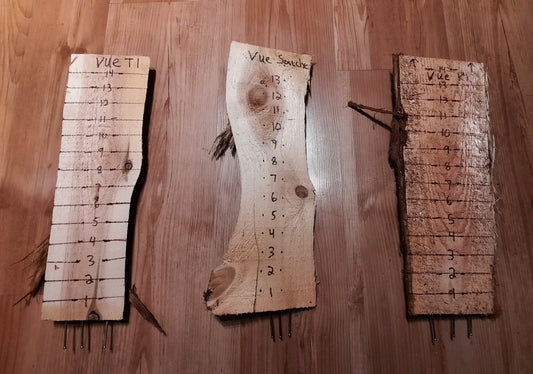 Vue T1
14
13
12
11
10
9
8
7
6
5
4
3
2
1
Vue
13
12
11
10
9
8
7
6
5
4
3
2
1
14
Vue
13
12
11
10
9
8
7
6
5
4
3
2
1